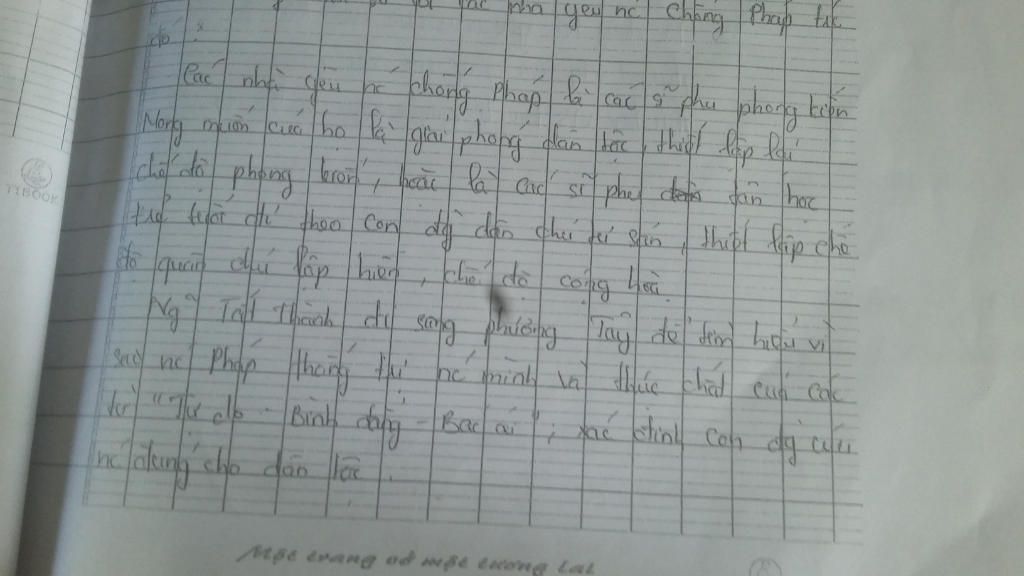 các nhà yêu nc chống Pháp trc
đó :
Các nhà yêu nc chống Pháp là các sĩ phu phong kiến
Mong muốn của họ là giải phóng dân tộc, thiết lập lại
chế độ phong kiến, hoặc là các sĩ phu dân học
đi theo con đg dân chủ tư sản, thiết lập chế
độ quân chủ lập hiến, chế độ cộng hòa.
Ng~ Tất Thành đi sang phương Tây để tìm hiểu vì
sao nc Pháp thống trị nc mình và thực chất của các
từ "Tự do - Bình đẳng - Bác ái"; xác định con đg cứu
nc đúng cho dân tộc.
Một trang vở một tương lai